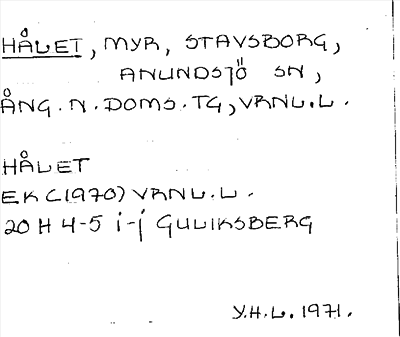 HÅLET, MYR, STAVSBORG,
ANUNDSJÖ SN,
ÅNG. N. DOMS. TG, VRNL.L.
HÅLET
EK (1970) VRNL.L.
20 H 4-5 i-j GULIKSBERG
Y.H.L. 1971.